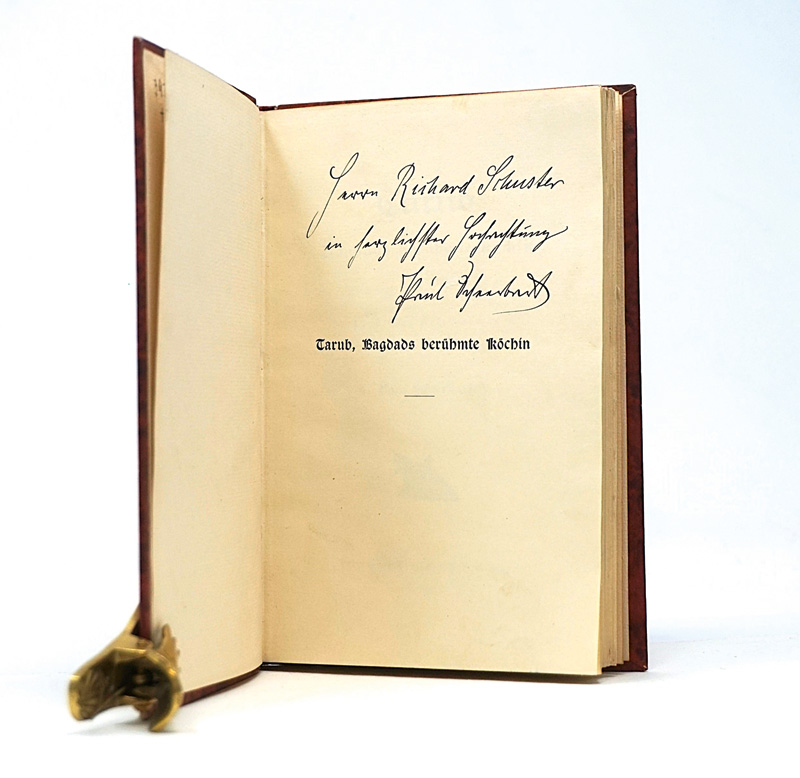 Herrn Richard Schuster
in herzlichster Hochachtung
Paul Scheerbart
Tarub, Bagdads berühmte Köchin